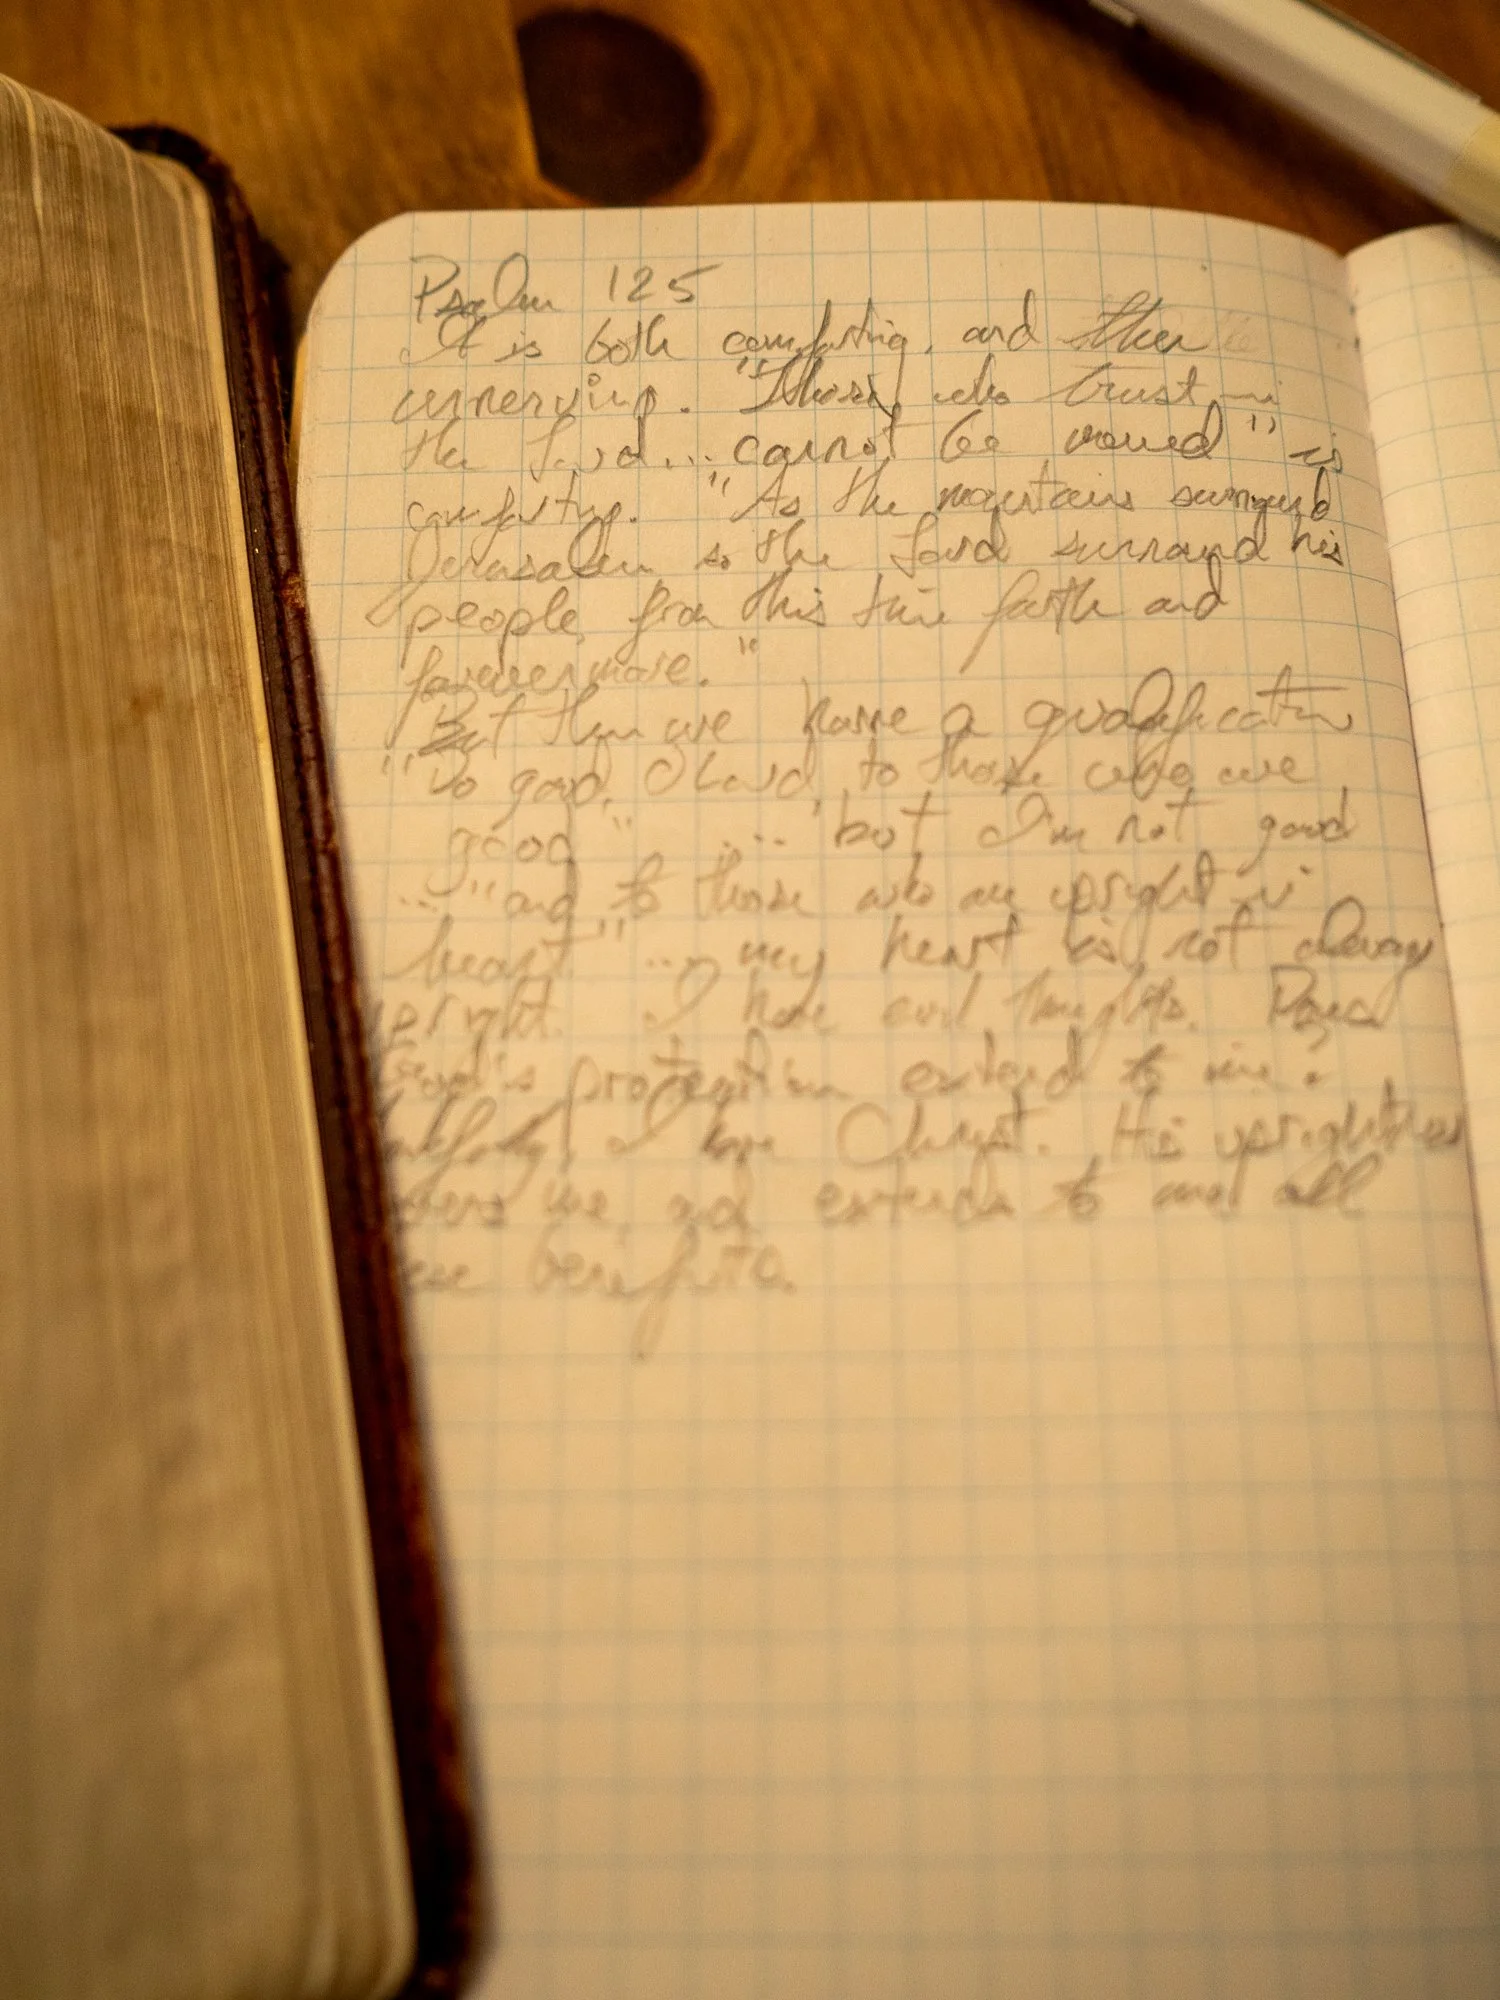 Psalm 125
It is both comforting, and then
unnerving. "Those who trust in
the Lord... cannot be moved" is
comforting. "As the mountains surround
Jerusalem so the Lord surround his
people, from this time forth and
forevermore."
But then we have a qualification
"Do good, O Lord, to those who are
good" ... but I'm not good
... "and to those who are upright in
heart" ... my heart is not always
upright. I have evil thoughts. Does
God's protection extend to me?
I have Christ. His uprightness
me, and extends to me all
benefits.